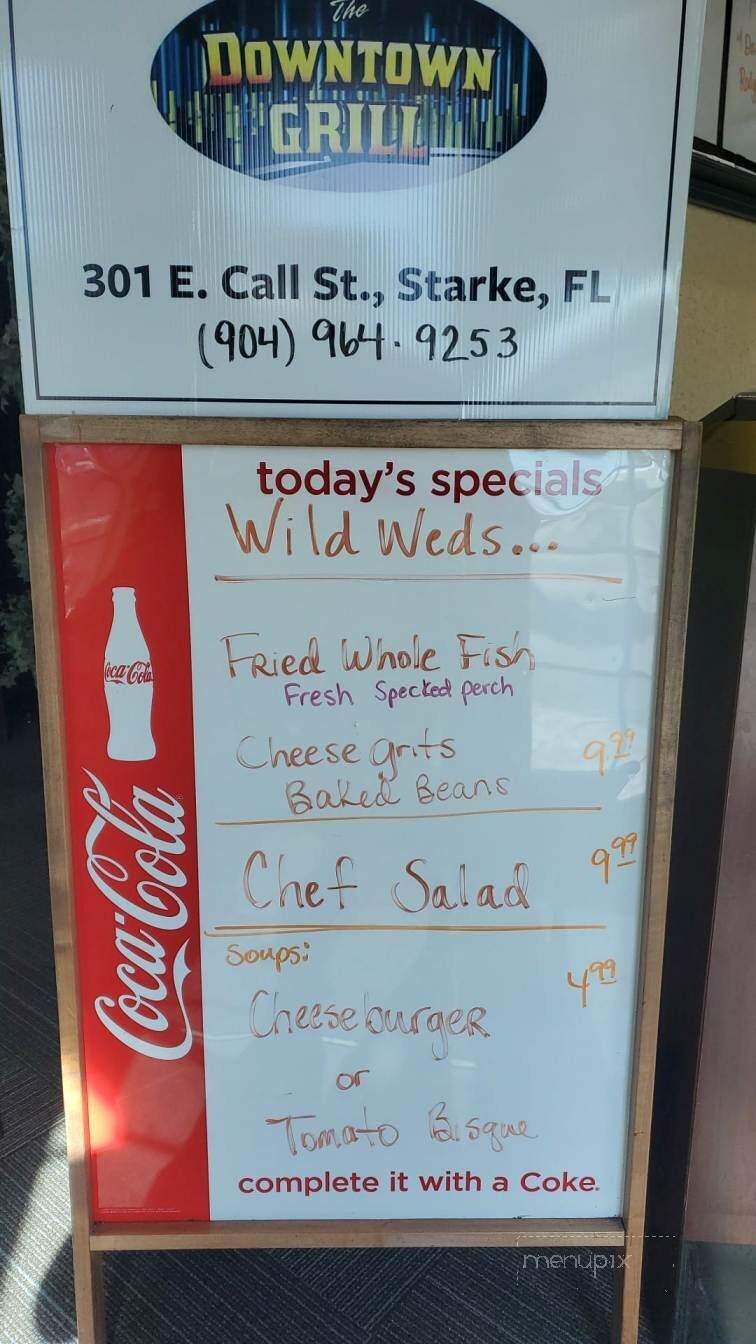 The
DOWNTOWN
GRILL
301 E. Call St., Starke, FL
(904) 964-9253
today's specials
Wild Weds...
Fried Whole Fish
Fresh Specked perch
Cheese grits 9.99
Baked Beans
Chef Salad 9.99
Soups: 4.99
Cheeseburger
or
Tomato Bisque
complete it with a Coke.
Coca-Cola
Coca-Cola
menupix